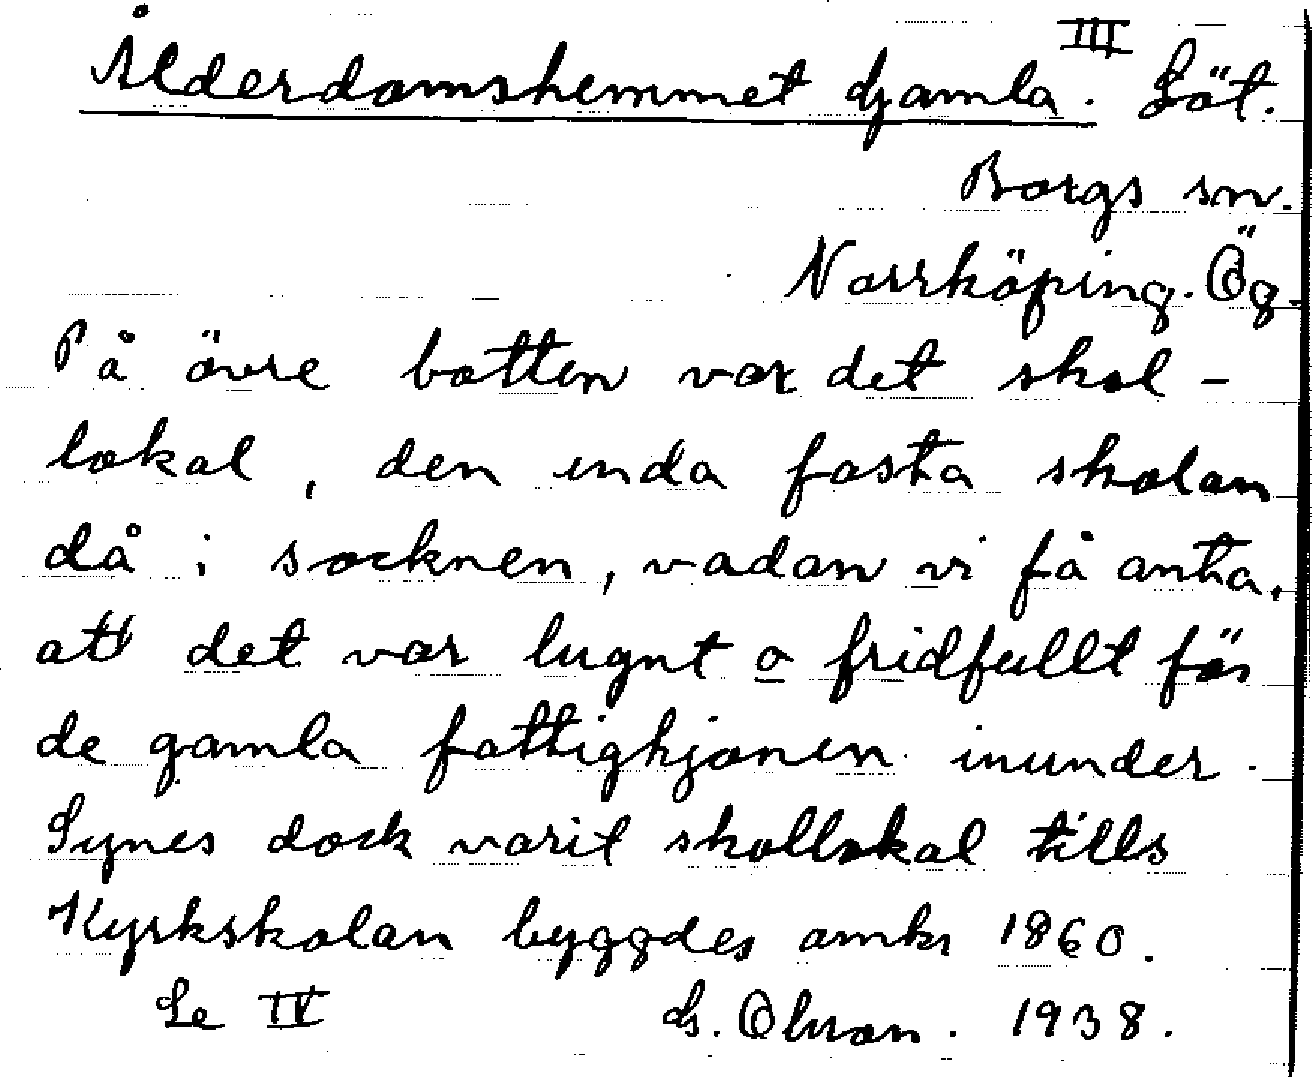 III
Ålderdomshemmet Gamla. Löt.
Borgs sn.
Norrköping. Ög.
På övre botten var det skol-
lokal, den enda fasta skolan
då i socknen, vadan vi få anta,
att det var lugnt o fridfullt för
de gamla fattighjonen inunder.
Synes dock varit skollokal tills
Kyrkskolan byggdes omkr 1860.
Se IV G. Olsson. 1938.